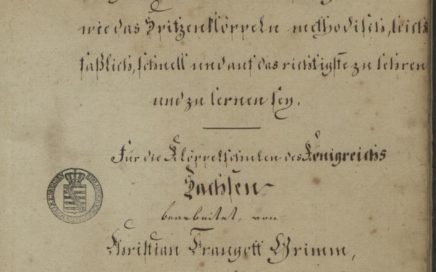 wie das Spitzenklöppeln methodisch, leicht
faßlich, schnell und auf das richtigste zu lehren
und zu lernen sey.
Für die Klöppelschulen des Königreichs
Sachsen
bearbeitet von
Christian Traugott Grimm,